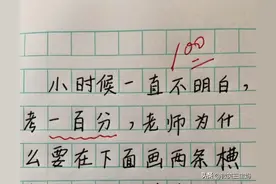 100
小时候一直不明白，
考一百分，老师为什
么要在下面画两条横